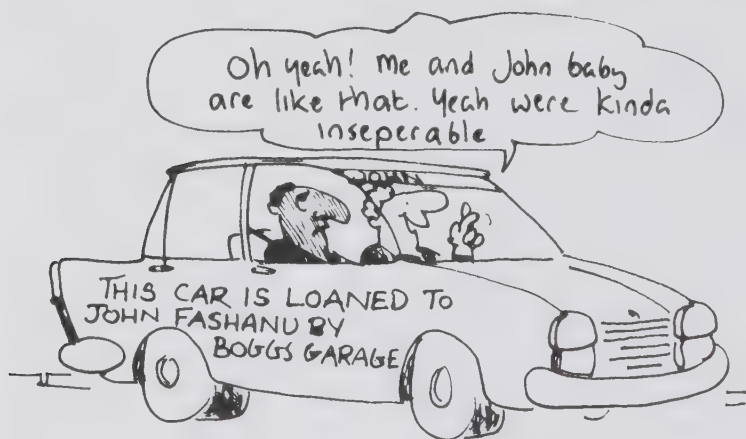 Oh yeah! Me and John baby
are like that. Yeah were kinda
inseperable
JOHN
THIS CAR IS LOANED TO
JOHN FASHANU BY
BOGGS GARAGE